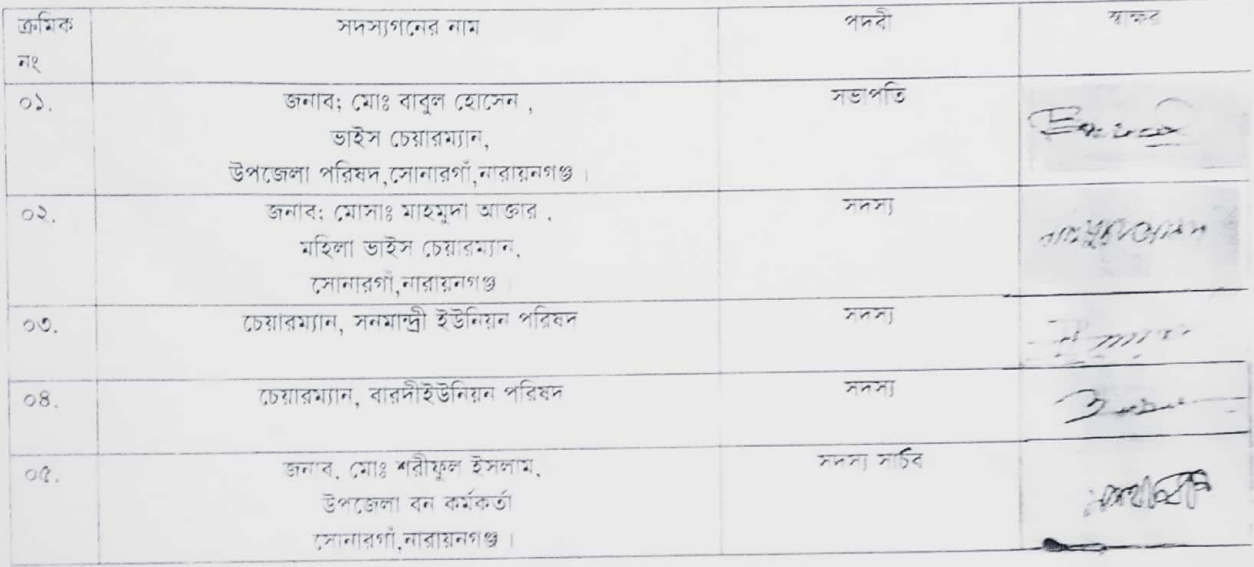 ক্রমিক নং সদস্যগনের নাম পদবী স্বাক্ষর
০১. জনাব; মোঃ বাবুল হোসেন , সভাপতি
ভাইস চেয়ারম্যান,
উপজেলা পরিষদ,সোনারগাঁ,নারায়নগঞ্জ ।
০২. জনাব; মোসাঃ মাহমুদা আক্তার , সদস্য
মহিলা ভাইস চেয়ারম্যান,
সোনারগাঁ,নারায়নগঞ্জ ।
০৩. চেয়ারম্যান, সনমান্দ্রী ইউনিয়ন পরিষদ সদস্য
০৪. চেয়ারম্যান, বারদীইউনিয়ন পরিষদ সদস্য
০৫. জনাব, মোঃ শরীফুল ইসলাম, সদস্য সচিব
উপজেলা বন কর্মকর্তা
সোনারগাঁ,নারায়নগঞ্জ ।